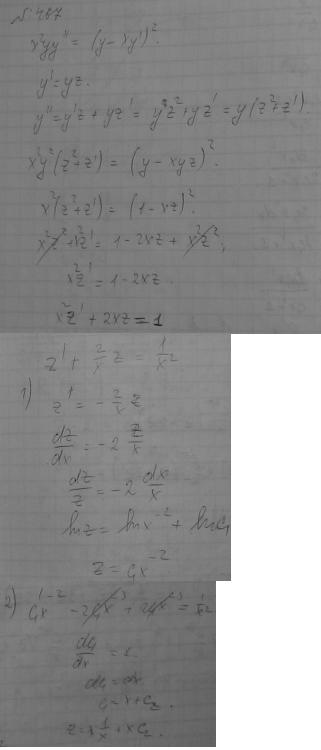 № 467
x²yy'' = (y - xy')².
y' = yz.
y'' = y'z + yz' = yz² + yz' = y(z² + z').
x²y²(z² + z') = (y - xyz)².
x²(z² + z') = (1 - xz)².
x²z² + x²z' = 1 - 2xz + x²z²;
x²z' = 1 - 2xz.
x²z' + 2xz = 1
z' + 2/x z = 1/x²
1) z' = - 2/x z
dz/dx = -2 z/x
dz/z = -2 dx/x
ln z = ln x⁻² + ln C₁
z = C₁x⁻²
2) C₁'x⁻² - 2C₁x⁻³ + 2C₁x⁻³ = 1/x²
dC₁/dx = 1.
dC₁ = dx
C₁ = x + C₂.